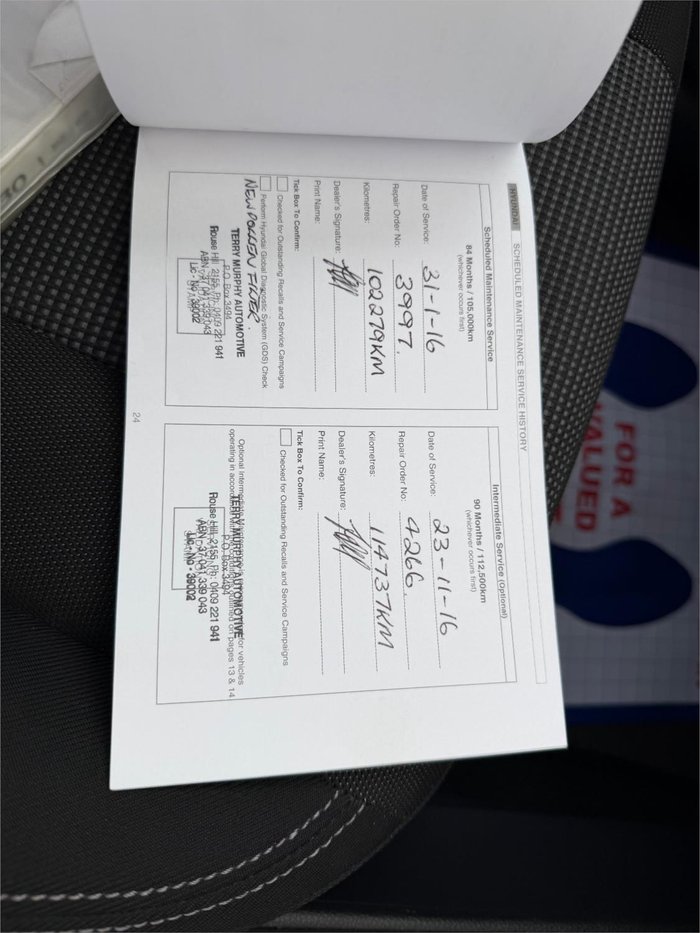 HYUNDAI SCHEDULED MAINTENANCE SERVICE HISTORY
Scheduled Maintenance Service
84 Months / 105,000km
(whichever occurs first)
Date of Service: 31-1-16
Repair Order No: 3997.
Kilometres: 102279KM
Dealer's Signature:
Print Name:
Tick Box To Confirm:
Checked for Outstanding Recalls and Service Campaigns
Perform Hyundai Global Diagnostic System (GDS) Check
NEW POLLEN FILTER.
TERRY MURPHY AUTOMOTIVE
P.O. Box 3494
Rouse Hill 2155, Ph: 0409 221 941
ABN - 37 041 339 043
Lic - No - 39002
Intermediate Service (Optional)
90 Months / 112,500km
(whichever occurs first)
Date of Service: 23-11-16
Repair Order No: 4266.
Kilometres: 114737KM
Dealer's Signature:
Print Name:
Tick Box To Confirm:
Checked for Outstanding Recalls and Service Campaigns
Optional Intermediate for vehicles
operating in on pages 13 & 14
TERRY MURPHY AUTOMOTIVE
P.O. Box 3494
Rouse Hill 2155, Ph: 0409 221 941
ABN - 37 041 339 043
Lic - No - 39002
24
FOR A
VALUED